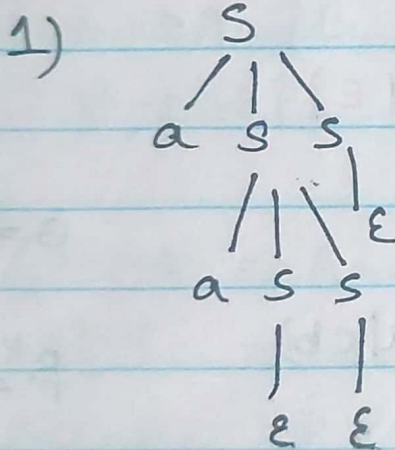 1) S
a S S
ε
a S S
ε ε